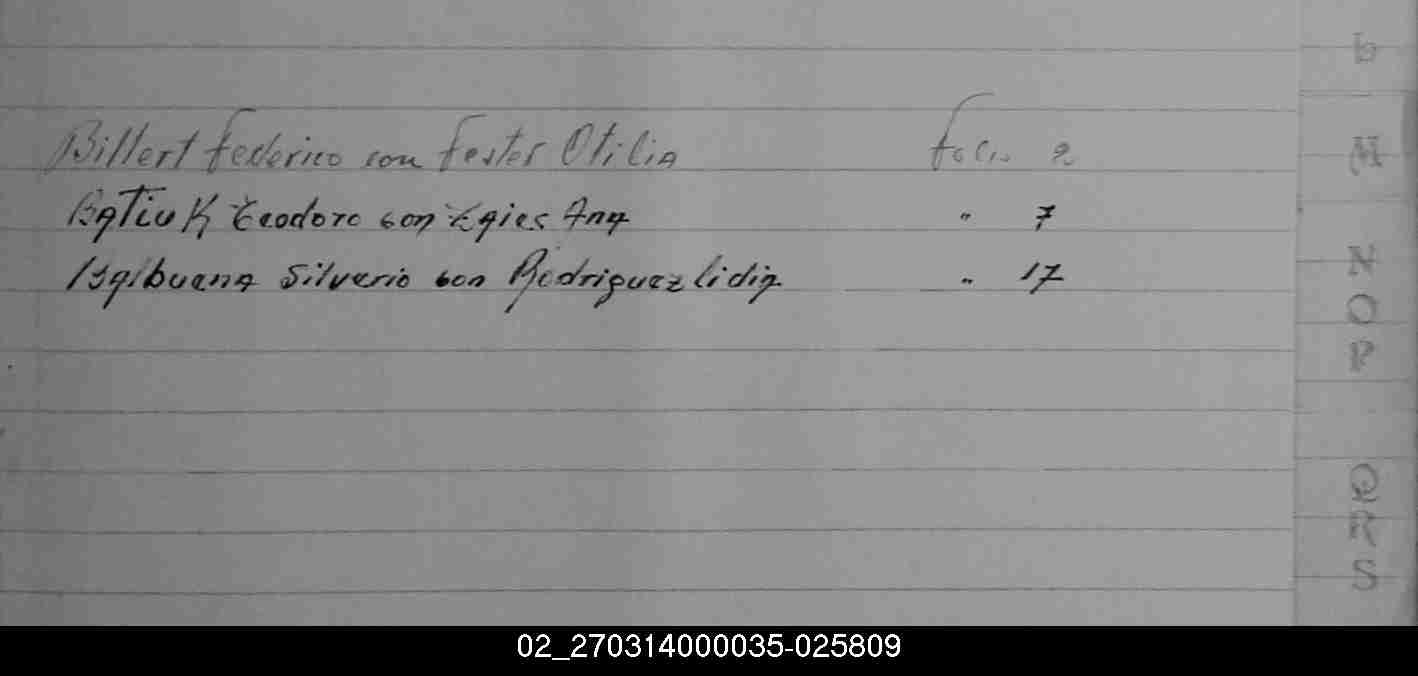 Billert Federico con Fester Otilia folio 2
Batiuk Teodoro con Zaies Ana " 7
Balbuena Silverio con Rodriguez lidia " 17
b
M
N
O
P
Q
R
S
02_270314000035-025809